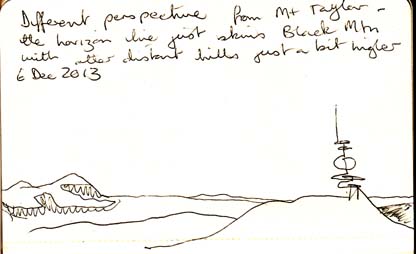 Different perspective from Mt Taylor -
the horizon line just skims Black Mtn
with other distant hills just a bit higher
6 Dec 2013